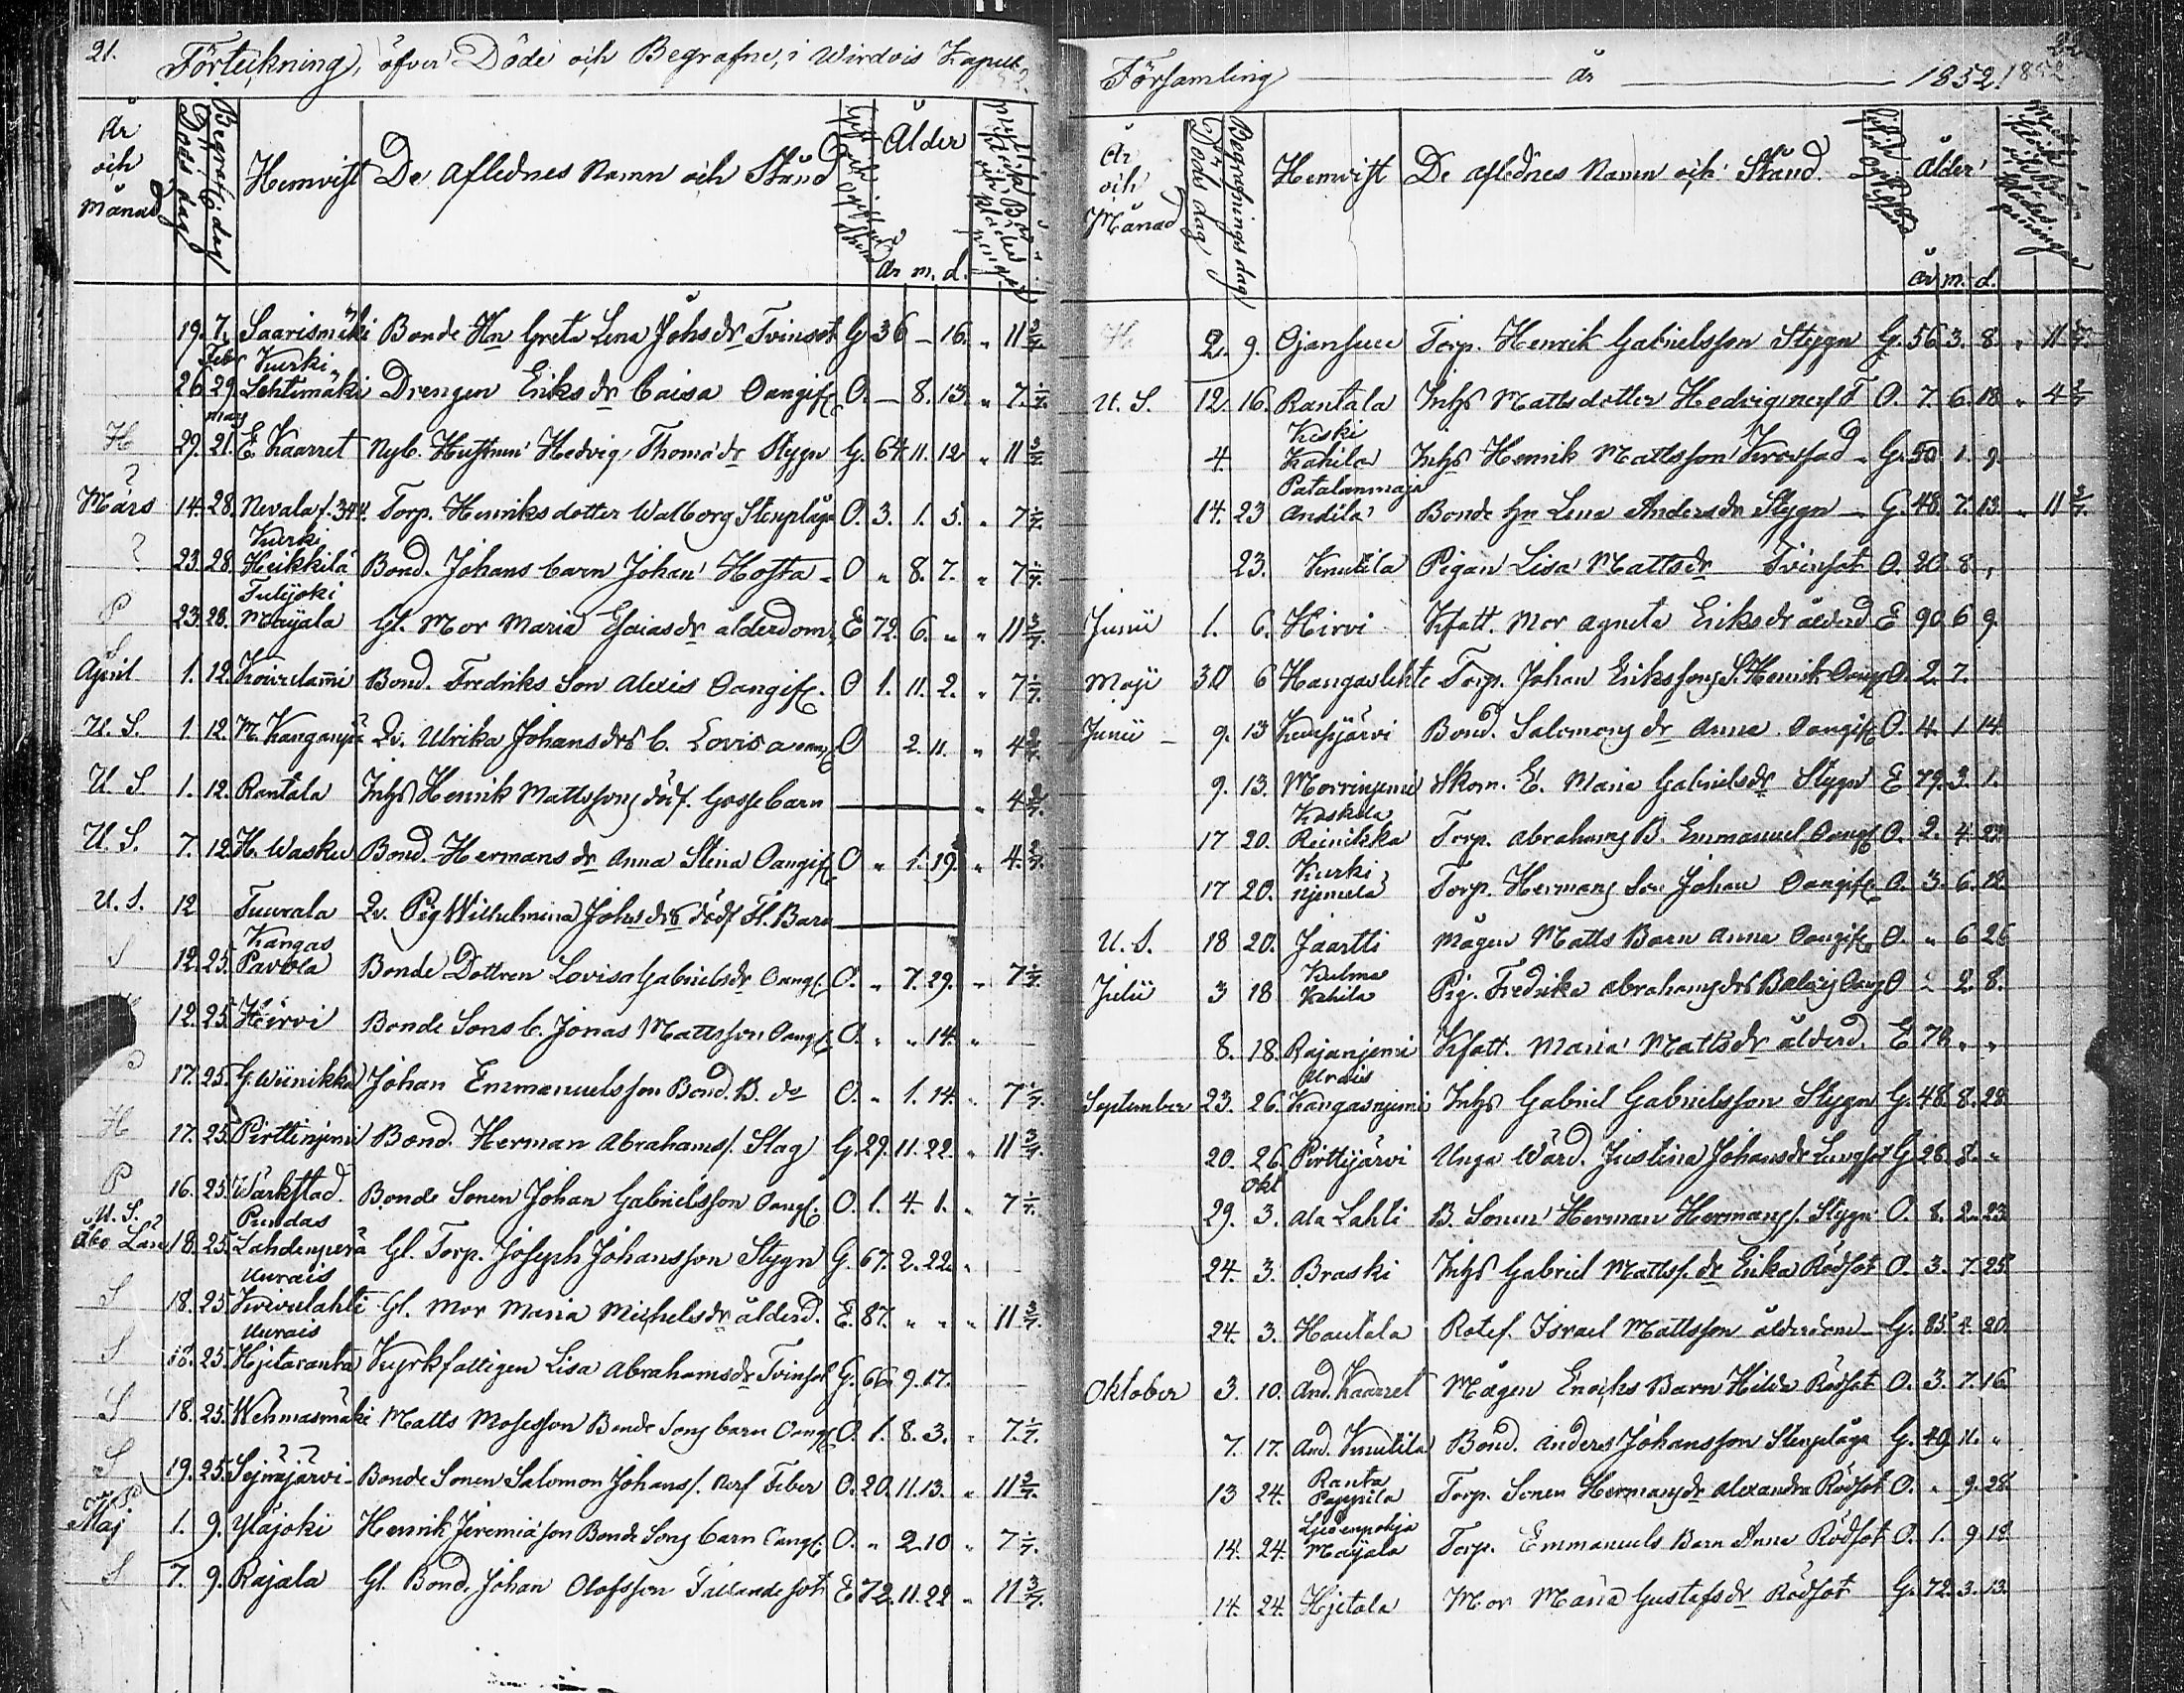 21.
Förteckning, öfver Döde och Begrafne, i Wirdois Kapell
År och Månad Döds dag Begrafn. dag Hemvist De Aflednes Namn och Stånd Ålder
år m. d.
19. 7. Saarismäki Bonde Hn Greta Lena Johsdr Tvinsot G 36 – 16. " 11 3/7.
Febr Kurki
26 29. Lehtimäki Drengen Eriks dr Caisa Oangif. O. – 8. 13. " 7. 1/7.
mars
H 29. 21. E Kaarret Nyb. Hustrun Hedvig Thomædr Stygn G. 64. 11. 12 " 11 3/7.
?
Mars 14. 28. Nevala f. 344. Torp. Henriksdotter Walborg Stenplåga O. 3. 1. 5. " 7 1/7.
Kurki
? 23. 28. Heikkilä Bond. Johans barn Johan Hosta – O " 8. 7. " 7 1/7.
Tulijoki
P 23. 28. Mäyälä Gl. Mor Maria Esaiasdr ålderdom E 72. 6. " " 11 3/7.
S
April 1. 12. Koivulami Bond. Fredriks Son Alexis Oangif. O 1. 11. 2. " 7 1/7.
U. S. 1 12. M. Kanganpää Qv. Ulrika Johansdrs b. Lovisa oang. O 2. 11. " 4 2/7.
U. S 1. 12. Rantala Inhs Henrik Mattssons dödf. Gossebarn " 4 2/7.
U. S. 7. 12 H. Wasku Bond. Hermans dr Anna Stina Oangif. O " 1. 19. " 4. 2/7.
U. S. 12 Tuurala Qv. Pig Wilhelmina Johsdrs dödf Fl. Barn
Kangas
S 12. 25. Pavola Bonde Dottren Lovisa Gabrielsdr Oangf. O. " 7. 29. " 7 1/7.
12. 25. Hirvi Bonde Sons b. Jonas Mattsson Oangf. O. " " 14. "
17. 25. G. Wiinikka Johan Emmanuelsson Bond. B. do O. " 1. 14. " 7 1/7.
H 17. 25. Pirttinjemi Bond. Herman Abrahams/. Slag G. 29. 11. 22. " 11 3/7.
P 16. 25. Wärkstad. Bonde Sonen Johan Gabrielsson Oangf. O. 1. 4. 1. " 7 1/7.
U. S. Pundas
Åbo Län 18. 25. Lahdenperä Gl. Torp. Joseph Johansson Stygn G. 67. 2. 22. "
Uurais
S 18. 25. Koivulahti Gl. Mor Maria Michelsdr ålderd. E. 87. " " " 11 3/7.
Uurais
S 18. 25. Hjetaranta Kyrkfattigen Lisa Abrahamsdr Tvinsot G. 66. 9. 17.
S 18. 25. Wehmasmäki Matts Mosesson Bonde Sons barn Oangf. O. 1. 8. 3. " 7. 1/7.
S 19. 25. Sejnäjärvi Bonde Sonen Salomon Johans/. Nerf Feber O. 20. 11. 13. " 11 3/7.
Maj 1. 9. Yläjoki Henrik Jeremiæson Bonde Sons barn Oangf. O. " 2. 10 " 7 1/7.
S 7. 9. Rajala Gl. Bond. Johan Olofsson Fallandesot E 72. 11. 22 " 11 3/7.
22.
Församling År 1852. 1852
År och Månad Döds dag Begrafnings dag Hemvist De Aflednes Namn och Stånd. Ålder
år m. d.
H. 2. 9. Ojansuu Torp. Henrik Gabrielsson Stygn G. 56 3. 8. " 11 3/7.
U. S. 12. 16. Rantala Inhs Mattsdotter Hedvig O. 7. 6. 18 " 4 2/7
Keski
4. Kahila Inhs Henrik Mattsson G. 50 1. 9.
Patalanmaja
14. 23 Andila Bonde Hn Lena Andersdr Stygn – G. 48. 7. 13. " 11 3/7.
23. Knutila Pigan Lisa Mattsdr Tvinsot O. 20. 8. "
Junii 1. 6. Hirvi Kfatt. Mor Agneta Eriksdr ålderd E 90. 6 9.
Maji 30 6 Hangaslehto Torp. Johan Erikssons S. Henrik Oangf. O. 2. 7.
Junii – 9. 13 Bond. Salomons dr Anna Oangif. O. 4. 1 14.
9. 13. Morrinjemi Skom. E. Maria Gabrielsdr Stygn E 79. 3. 1.
Koskela
17 20. Reinikka Torp. Abrahams B. Emmanuel Oangf. O. 2. 4. 22
Kurki
17 20. Njemelä Torp. Hermans Son Johan Oangif. O. 3. 6. 12.
U. S. 18 20. Jaartti Mågen Matts Barn Anna Oangif. O. " 6 26
Kulma
Julii 3 18 Kahila Pig. Fredrika Abrahamsdrs B. Oang. O 2 2. 8.
8. 18. Rajanjemi Kfatt. Maria Mattsdr ålderd. E 78 " "
Urais
September 23. 26. Kangasnjemi Inhs Gabriel Gabrielsson Stygn G. 48. 8. 28.
20. 26. Pirttijärvi Unga Wärd. Justina Johansdr Lungsot G. 28. 8. "
Okt
29. 3. Ala Lahti B. Sonen Herman Hermans/. Stygn O. 8. 2. 23
24. 3. Braski Inhs Gabriel Matts/. dr Erika Rödsot O. 3. 7. 25.
24. 3. Hautala Rotef. Israel Mattsson ålderdom – G. 85. 4. 20.
Oktober 3. 10. And. Kaarret Mågen Enochs Barn Hilda Rödsot O. 3. 7. 16
7. 17. And. Knutila Bond. Anders Johansson Stenplåga G. 49. 11. "
Ranta
13 24. Pappila Torp. Sonen Hermans dr Alexandra Rödsot O. " 9. 28.
Liedenpohja
14. 24. Mäyälä Torp. Emmanuels Barn Anna Rödsot O. 1. 9. 18
14. 24. Hjetala Mor Maria Gustafsdr Rödsot G. 72. 3. 13.